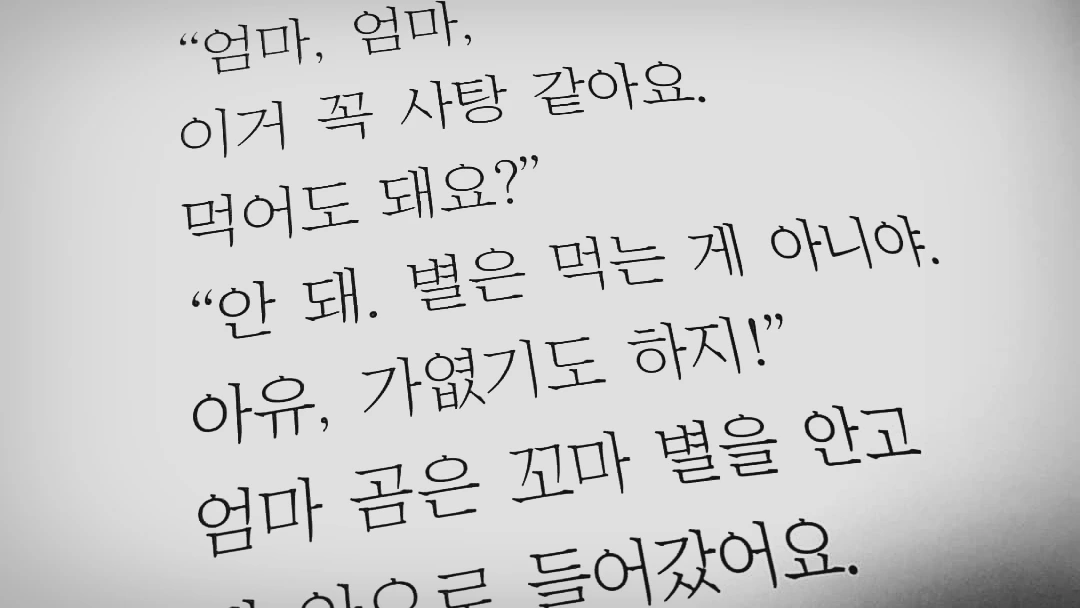 “엄마, 엄마,
이거 꼭 사탕 같아요.
먹어도 돼요?”
“안 돼. 별은 먹는 게 아니야.
아유, 가엾기도 하지!”
엄마 곰은 꼬마 별을 안고
안으로 들어갔어요.